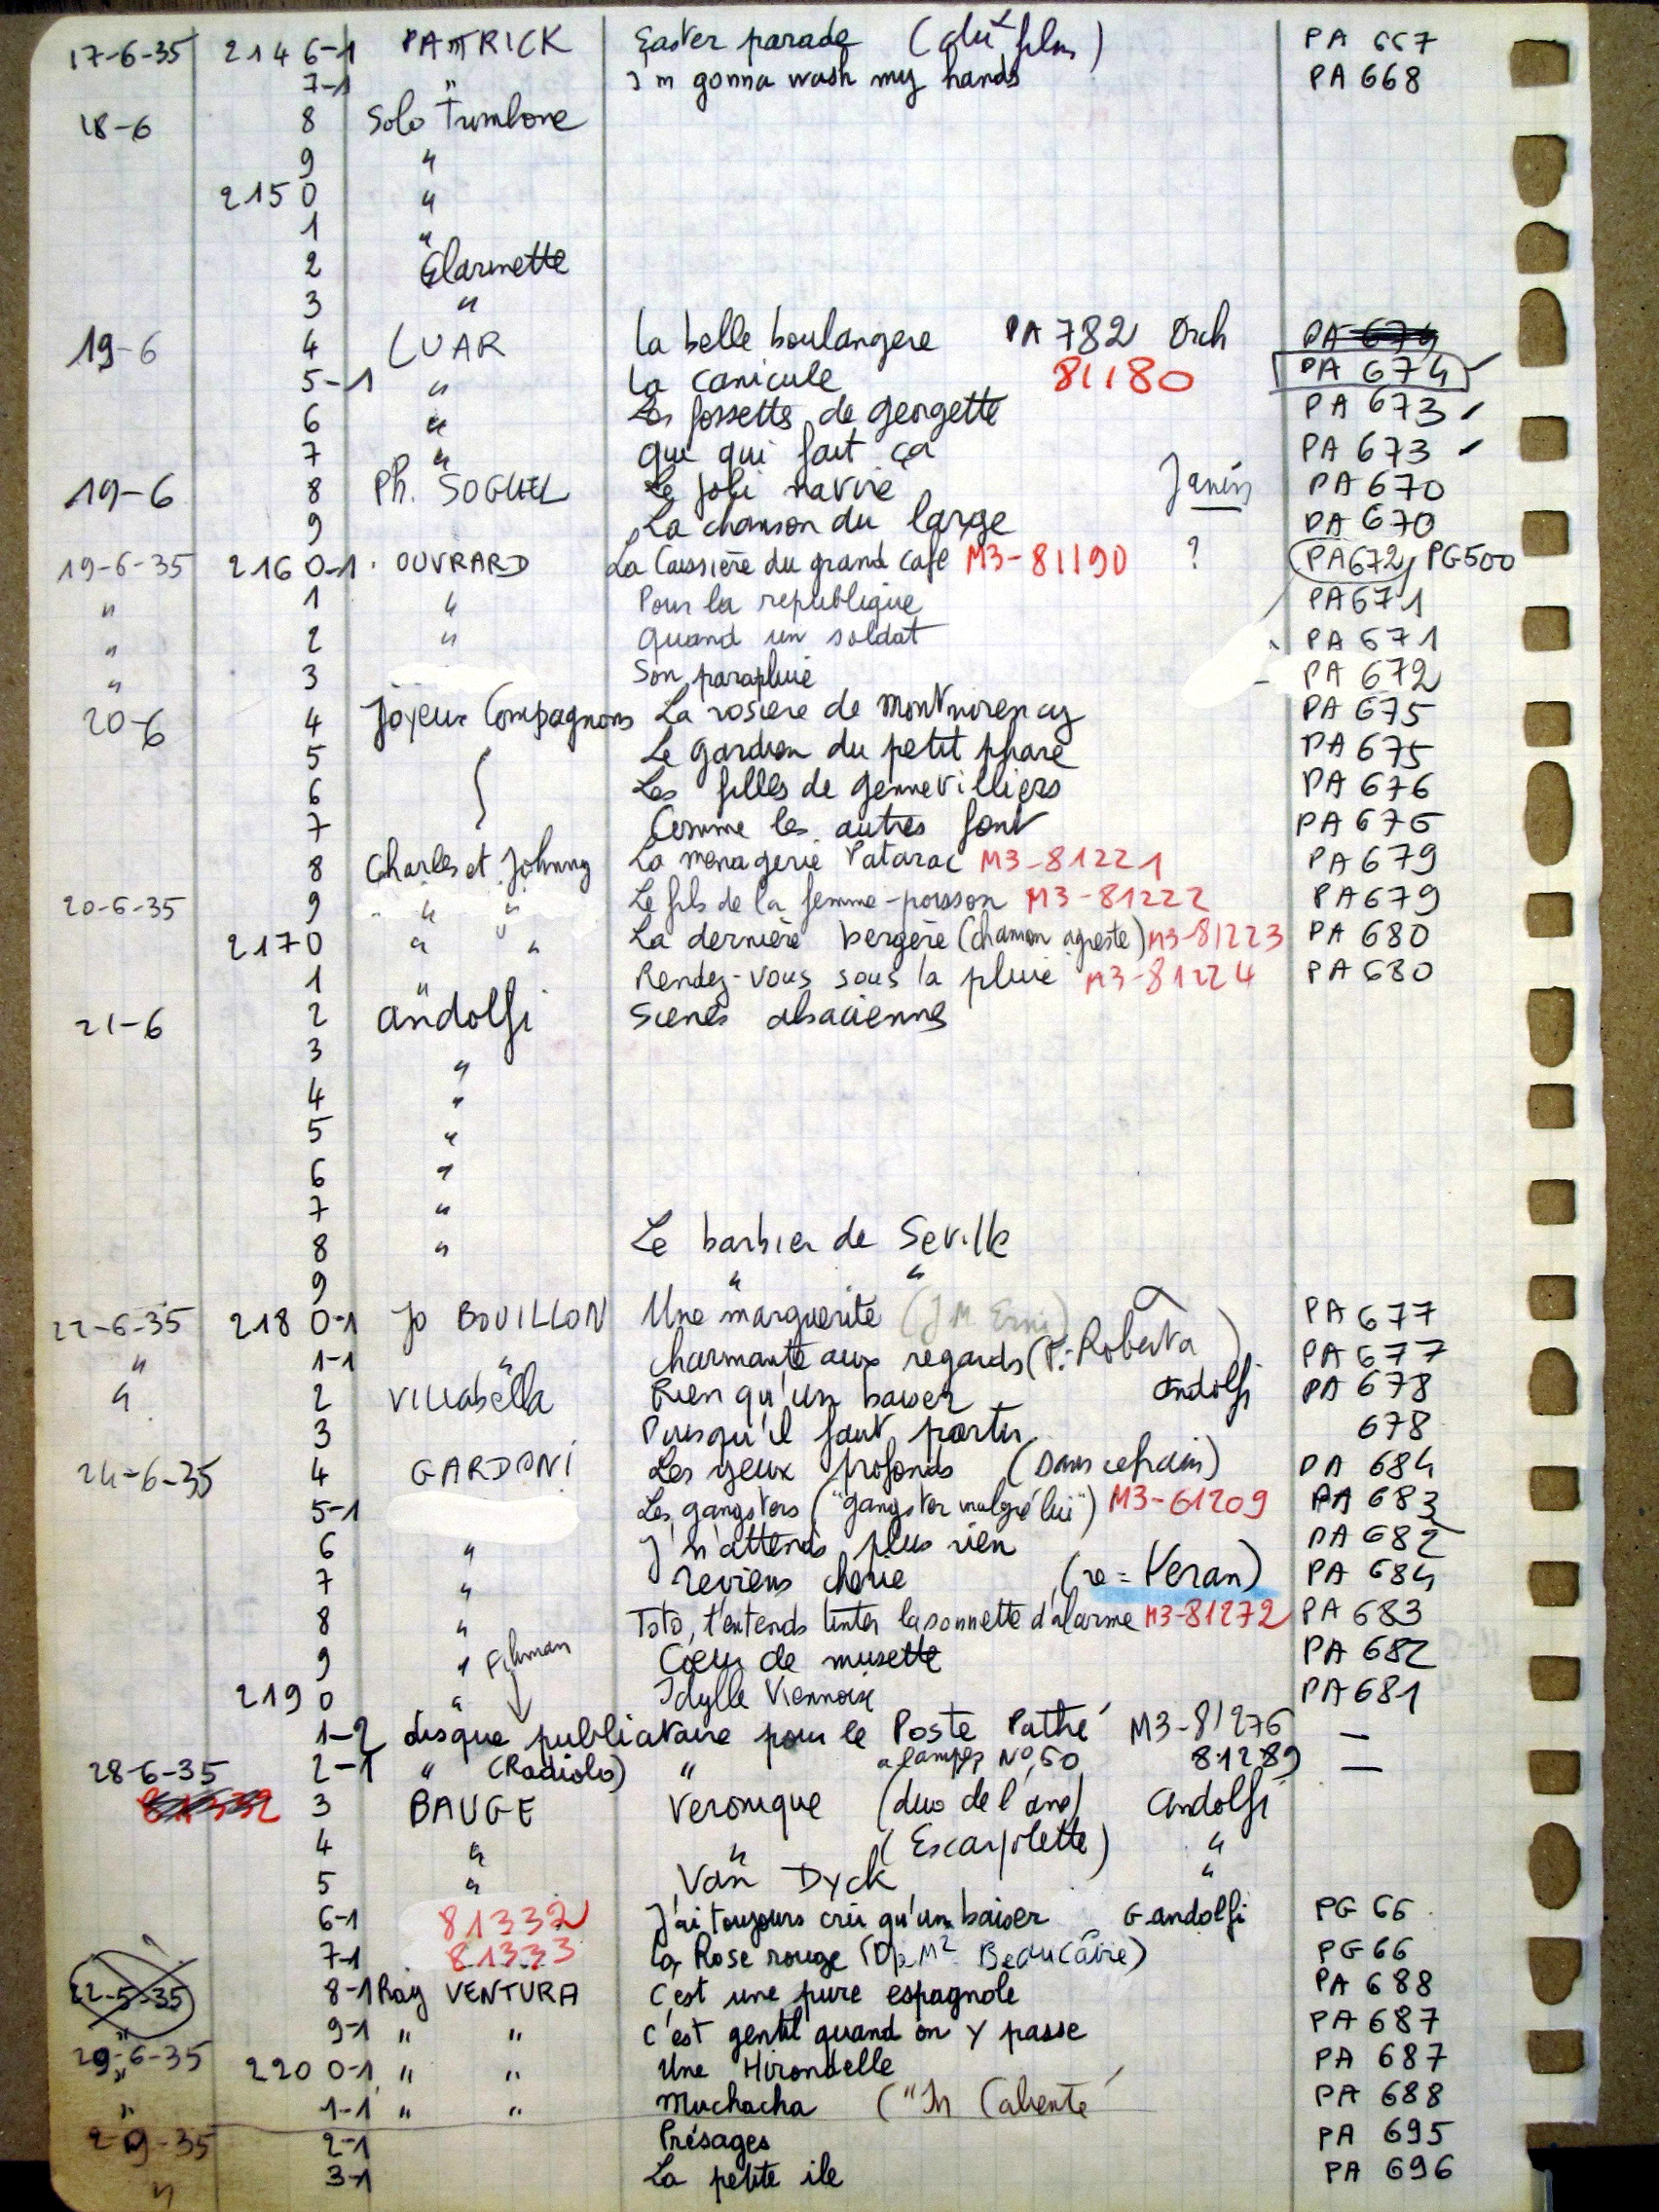 17-6-35 2146-1 PATTRICK Easter parade (du film) PA 667
7-1 " I'm gonna wash my hands PA 668
18-6 8 Solo Trombone
9 "
2150 "
1 "
2 Clarinette
3 "
19-6 4 LUAR La belle boulangere PA 782 Orch PA 674
5-1 " La canicule 81180 PA 674
6 " Les fossettes de georgette PA 673
7 " Qui qui fait ça PA 673
19-6 8 Ph. SOGUEL Le joli navire Janin PA 670
9 La chanson du large PA 670
19-6-35 2160-1 OUVRARD La Caissière du grand café M3-81190 ? PA672, PG500
" 1 " Pour la republique PA671
" 2 " Quand un soldat PA 671
" 3 Son parapluie PA 672
20-6 4 Joyeux Compagnons La rosiere de Montmorency PA 675
5 Le gardien du petit phare PA 675
6 Les filles de gennevilliers PA 676
7 Comme les autres font PA 676
8 Charles et Johnny La menagerie Patarac M3-81221 PA 679
20-6-35 9 " " Le fils de la femme-poisson M3-81222 PA679
2170 " " La dernière bergère (chanson agreste) M3-81223 PA 680
1 " Rendez-vous sous la pluie M3-81224 PA 680
21-6 2 andolfi Scenes alsaciennes
3 "
4 "
5 "
6 "
7 "
8 " Le barbier de Seville
9 " "
22-6-35 2180-1 Jo BOUILLON Une marguerite (J M Erni) PA 677
" 1-1 " Charmante aux regards (F: Roberta) PA 677
" 2 VILLabella Rien qu'un baiser andolfi PA 678
3 Puisqu'il faut partir 678
24-6-35 4 GARDONI Les yeux profonds (sans refrain) PA 684
5-1 Les gangsters ("gangster malgré lui") M3-61209 PA 683
6 " J'n'attends plus rien PA 682
7 " reviens cherie (re = Veran) PA 684
8 " Toto, t'entends tinter la sonnette d'alarme M3-81272 PA 683
9 " Fihman Coeur de musette PA 682
2190 " Idylle Viennoise PA681
1-2 disque publicitaire pour le Poste Pathé M3-81276 —
28-6-35 2-1 " (Radiolo) " a lampes No 60 81289 —
3 BAUGE Veronique (duo de l'ane) andolfi
4 " " (Escarpolette) "
5 " Van Dyck "
6-1 81332 J'ai toujours cru qu'un baiser Gandolfi PG 66
7-1 81333 La Rose rouge PG 66
22-5-35 8-1 Ray VENTURA C'est une pure espagnole PA 688
" 9-1 " " C'est gentil quand on y passe PA 687
29-6-35 2200-1 " " Une Hirondelle PA 687
" 1-1 " " Muchacha ("In Caliente PA 688
2-9-35 2-1 Présages PA 695
" 3-1 La petite ile PA 696